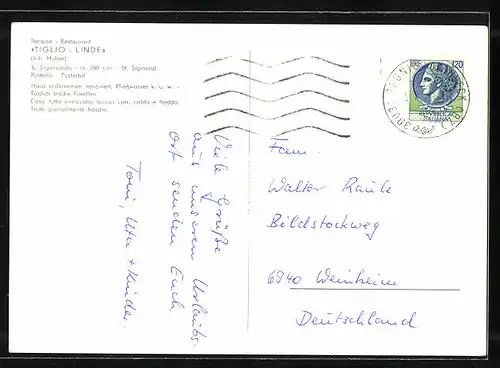 Pension - Restaurant
«TIGLIO - LINDE»
(Inh. Huber)
S. Sigismondo - m. 780 s.m. - St. Sigmund
Pusteria - Pustertal
Haus vollkommen renoviert, Fließwasser k. u. w. -
Täglich frische Forellen
Casa tutta rinnovata, acqua corr. calda e fredda
Trote giornalmente fresche
Viele Grüße
aus unserem Urlaubs-
ort senden Euch
Toni, Uta + Kinder
LIRE 120
Fam.
Walter Raule
Bildstockweg
6940 Weinheim
Deutschland